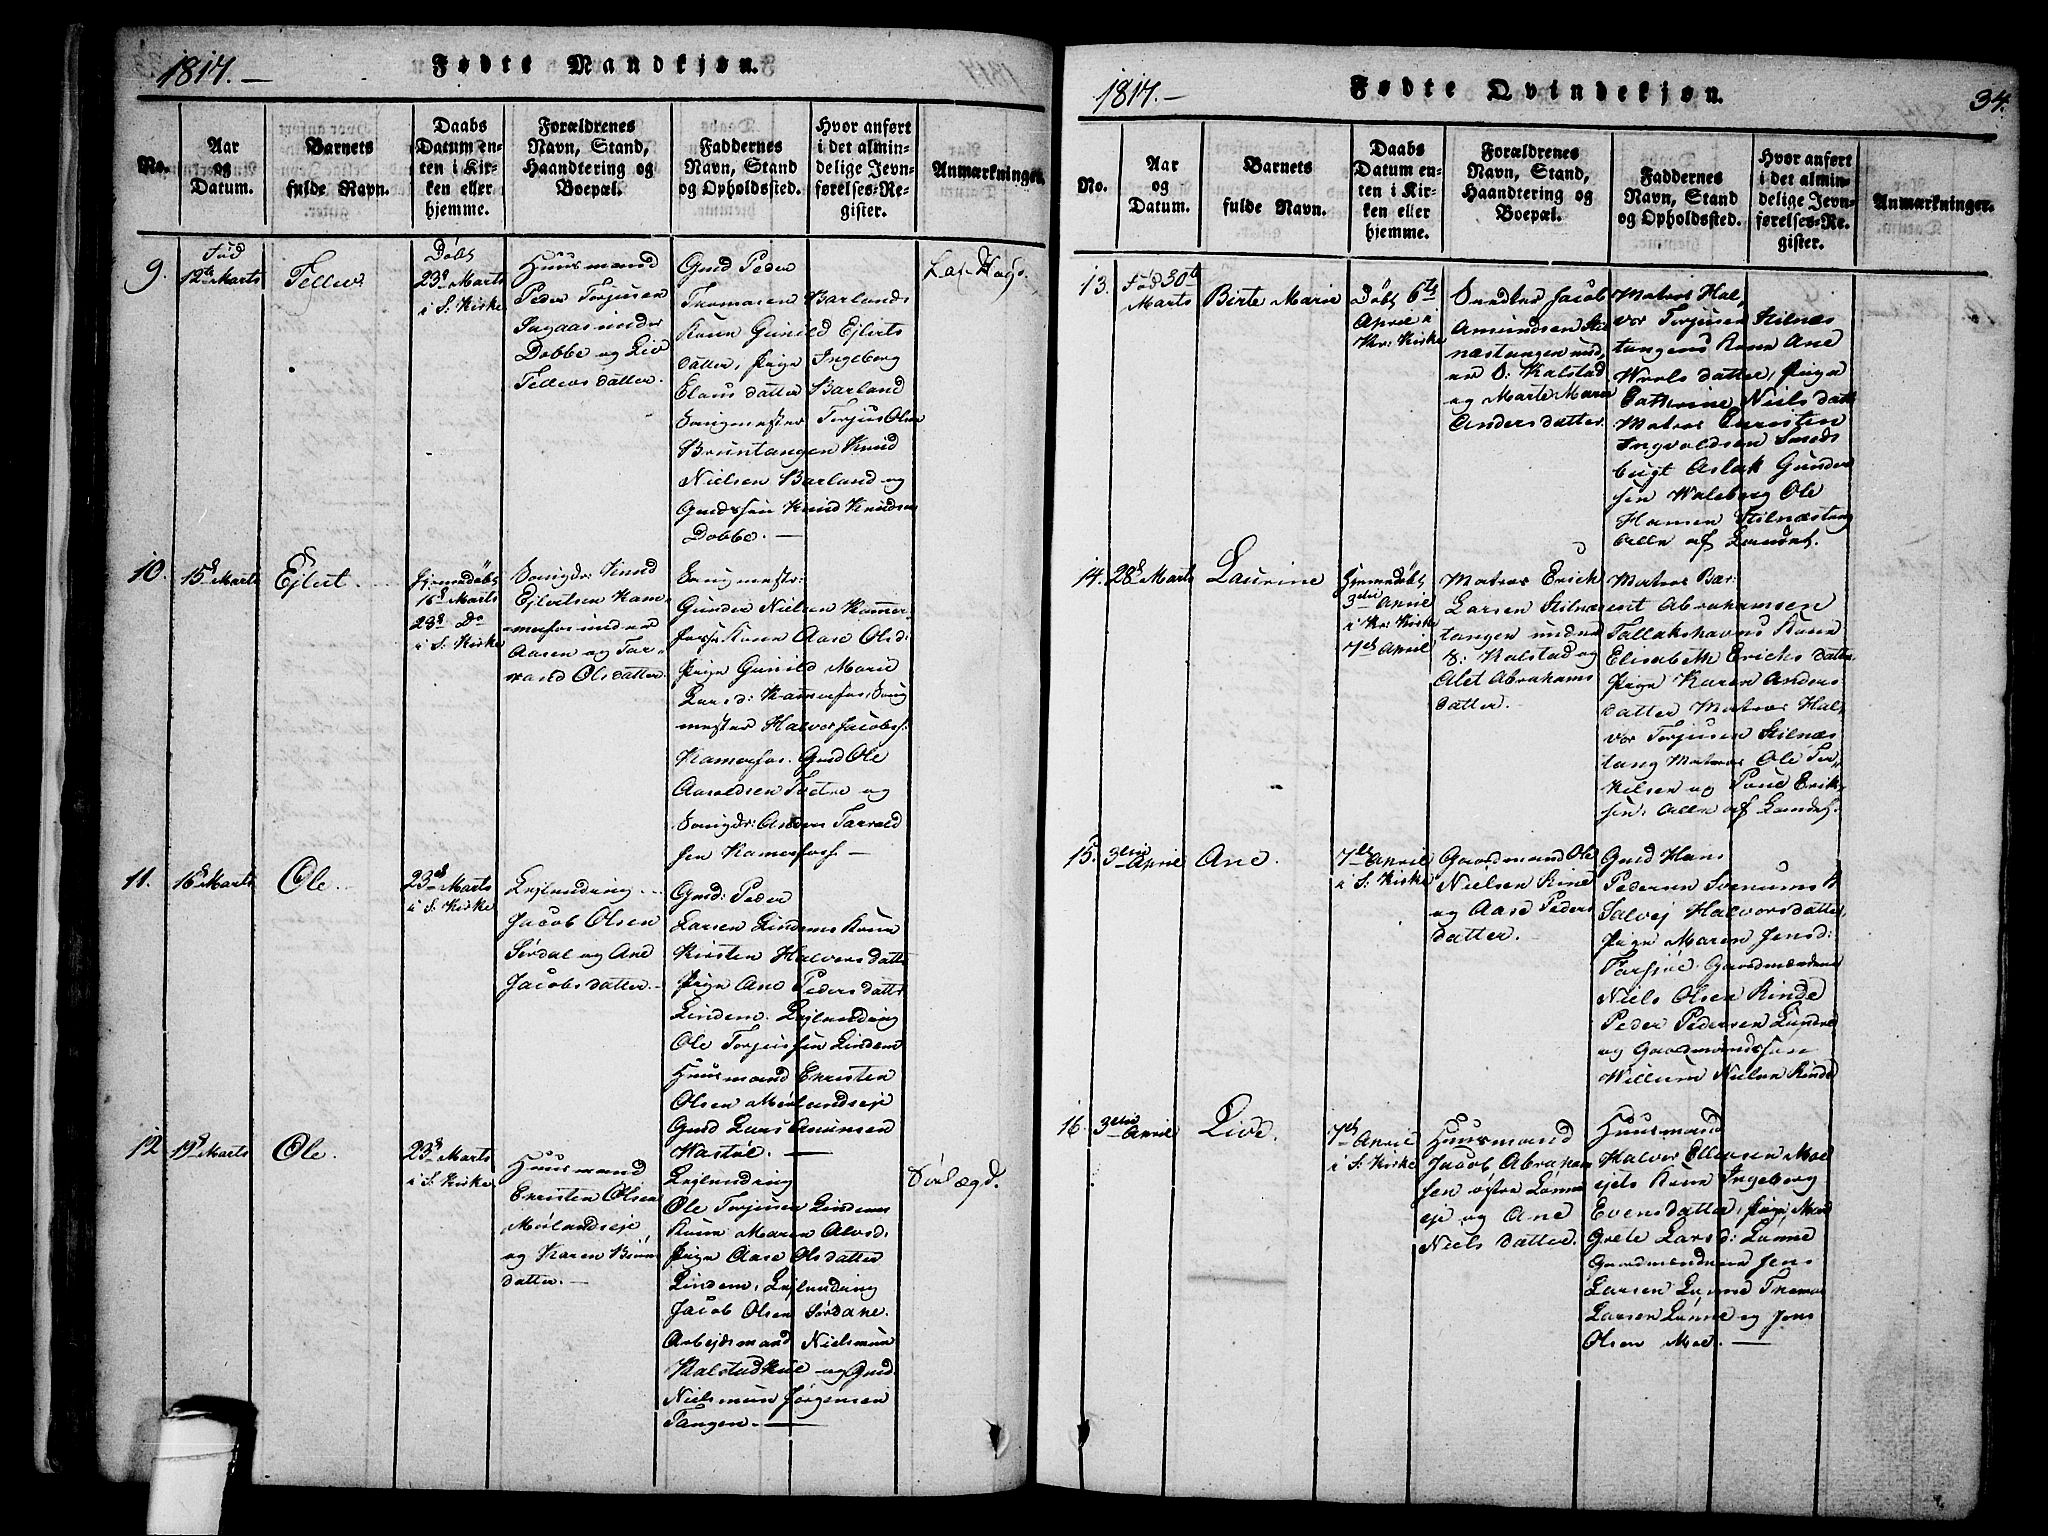 1817. —
Fødte Mandkjøn.
No.
Aar
og
Datum.
Barnets
fulde Navn.
Daabs
Datum en-
ten i Kir-
ken eller
hjemme.
Forældrenes
Navn, Stand,
Haandtering og
Boepæl.
Faddernes
Navn, Stand
og Opholdssted.
Hvor anført
i det almin-
delige Jevn-
førelses-Re-
gister.
Anmærkninger.
9.
Fød
12te Marts
Tellef
Døbt
23d Marts
i S: Kirke
Huusmand
Peder Torjusen
under
Dobbe og Liv
Tellefsdatter.
Gmd Peder
Thomasen Barlands
Kone Gunild Ejlerts
datter, Pige Ingeborg
Clausdatter Barland
Torjus Olsen
Bruntangen Knud
Nielsen Barland og
Gmdssøn Knud Knudsen
Dobbe. —
10.
15d Marts
Ejlert
Hjemmedøbt
16d Marts
23d Do
i S: Kirke
Knud
Ejlertsen Kam-
merfos under
Aasen og Tar-
rand Olsdatter.
Gunder Nielsen Kammer-
Kone Aase Olsd:
Pige Gunild Marie
Larsd: Kammerfos,
mester Halvor Jacobss.
Kamerfos. Gmd Ole
Aaroldsen Tveten og
Anders Tarrald
sen Kamerfos. —
11.
16d Marts
Ole.
23d Marts
i S. Kirke
Lejlending
Jacob Olsen
Sørdal og Ane
Jacobsdatter. —
Gmd: Peder
Larsen Lindems Kone
Kirsten Halvorsdatter
Pige Ane Pedersdatter
Lindem. Lejlending
Ole Torjussen Lindem
Huusmand Christen
Olsen Mørlandseje
Gmd Lars Amunsen
Wastøl. —
12
19d Marts
Ole.
23d Marts
i S. Kirke
Huusmand
Christen Olsen
Mørlandseje
og Karen Biørns
datter. —
Lejlending
Ole Torjusen Lindems
Kone Maren Alvsd.
Pige Aase Olsdatter
Lindem, Lejlending
Jacob Olsen Sørdane.
Arbejdsmand Nielsmun
Kalstadkiil og Gmd.
Nielsmun Jørgensen
Tangen. —
1817. —
Fødte Qvindekjøn.
34.
No.
Aar
og
Datum.
Barnets
fulde Navn.
Daabs
Datum en-
ten i Kir-
ken eller
hjemme.
Forældrenes
Navn, Stand,
Haandtering og
Boepæl.
Faddernes
Navn, Stand
og Opholdssted.
Hvor anført
i det almin-
delige Jevn-
førelses-Re-
gister.
Anmærkninger.
13.
Fød 30te
Marts
Birte Marie
Døbt 6te
April i
Kr: Kirke
Jacob
Amundsen Stil
næstangen und,
er S: Kalstad
og Marte Marie
Andersdatter
Matros Hal,
vor Torjusen Stilnæs
tangens Kone Ane
Wrolsdatter, Pige
Cathrine Nielsdatt
Matros Christen
Ingvoldsen Smeds
bugt Aslak Gunder
sen Waleborg Ole
Hansen Stilnæstang
alle af Landet.
14.
28d Marts
Laurine
Hjemmedøbt
3die April
i Kr: Kirke
7de April
Matros Erick
Larsen Stilnæs
tangen under
S: Kalstad og
Alet Abrahams
datter. —
Matros Bær:
ent Abrahamsen
Tallakshavns Kone
Elisabeth Ericksdatter.
Pige Karen Anders
datter Matros Hal,
vor Torjusen Stilnæs
tang Matros Ole Ter,
kelsen og Poul Erik,
sen, alle af Landet.
15.
3die April
Ane.
7de April
i S: Kirke
Gaardmand Ole
Nielsen Rinde
og Aase Peders
datter. —
Gmd Hans
Pedersen Svenums K
Salvej Halvorsdatter,
Pige Maren Jensd:
Farsjøe. Gaardmændene
Niels Olsen Rinde
Peder Pedersen Lundre
og Gaardmandssøn
Willum Nielsen Rinde
16.
3die April
Live.
7de April
i S: Kirke
Huusmand
Jacob Abraham
sen østre Lønne
eje og Ane
Nielsdatter.
Huusmand
Halvor Ellevsen Moe
ejets Kone Ingeborg
Evensdatter, Pige Mar
Grete Larsd: Lønne
Gaardmændene Jens
Larsen Lønne Thomas
Larsen Lønne og Jens
Olsen Moe. —